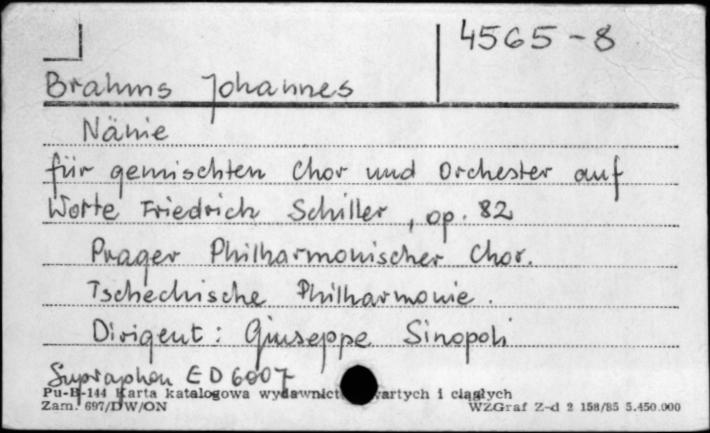 4565-8
Brahms Johannes
Nänie
für gemischten Chor und Orchester auf
Worte Friedrich Schiller, op. 82
Prager Philharmonischer Chor.
Tschechische Philharmonie.
Dirigent: Giuseppe Sinopoli
Supraphon ED 6007
Pu-B-144 Karta katalogowa wydawnict wartych i ciągłych
Zam. 697/DW/ON WZGraf Z-d 2 158/85 5.450.000